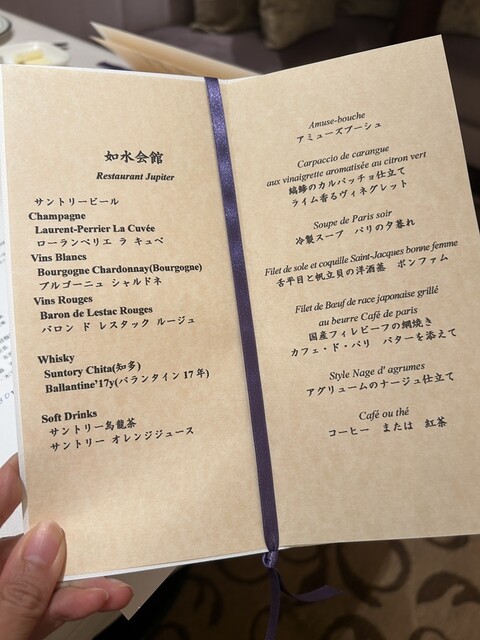 如水会館
Restaurant Jupiter
サントリービール
Champagne
Laurent-Perrier La Cuvée
ローランペリエ ラ キュベ
Vins Blancs
Bourgogne Chardonnay(Bourgogne)
ブルゴーニュ シャルドネ
Vins Rouges
Baron de Lestac Rouges
バロン ド レスタック ルージュ
Whisky
Suntory Chita(知多)
Ballantine'17y(バランタイン17年)
Soft Drinks
サントリー烏龍茶
サントリー オレンジジュース
Amuse-bouche
アミューズブーシュ
Carpaccio de carangue
aux vinaigrette aromatisée au citron vert
縞鯵のカルパッチョ仕立て
ライム香るヴィネグレット
Soupe de Paris soir
冷製スープ パリの夕暮れ
Filet de sole et coquille Saint-Jacques bonne femme
舌平目と帆立貝の洋酒蒸 ボンファム
Filet de Bœuf de race japonaise grillé
au beurre Café de paris
国産フィレビーフの網焼き
カフェ・ド・パリ バターを添えて
Style Nage d' agrumes
アグリュームのナージュ仕立て
Café ou thé
コーヒー または 紅茶